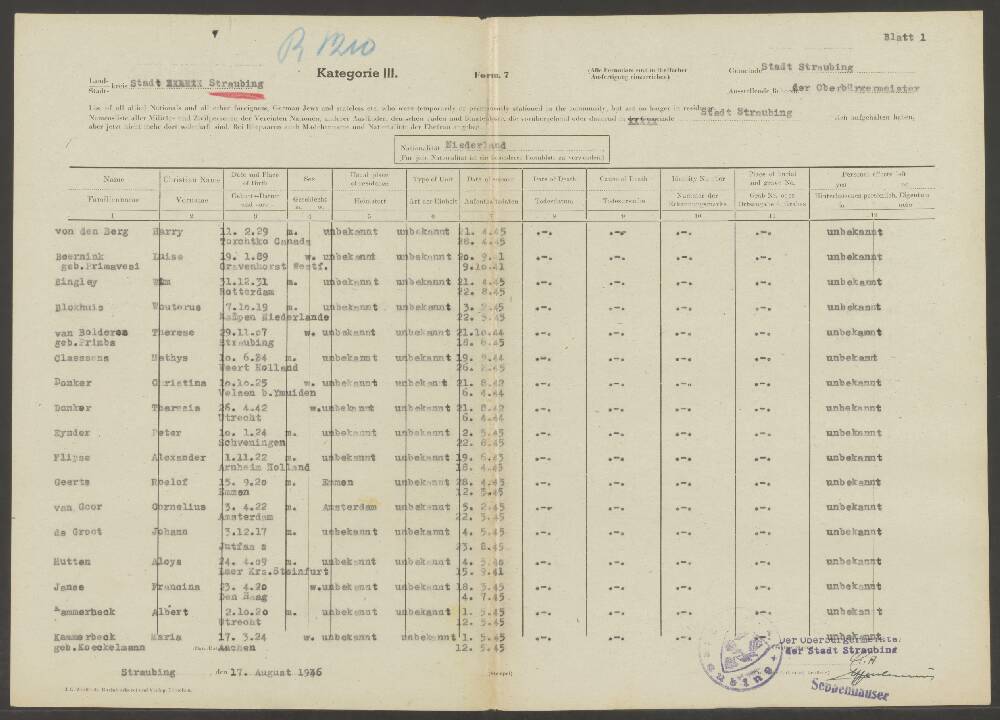 Blatt 1
R 1210
Kategorie III.
Form. 7
(Alle Formulare sind in 4facher
Ausfertigung einzureichen)
Land-
Stadt- kreis Stadt Straubing
Gemeinde Stadt Straubing
Ausstellende Behörde der Oberbürgermeister
List of all allied Nationals and all other foreigners, German Jews and stateless etc. who were temporarily or permanently stationed in the community, but are no longer in residence.
Namensliste aller Militär- und Zivilpersonen der Vereinten Nationen, anderer Ausländer, deutschen Juden und Staatenlose, die vorübergehend oder dauernd in Gemeinde Stadt Straubing sich aufgehalten haben,
aber jetzt nicht mehr dort wohnhaft sind. Bei Ehepaaren auch Mädchenname und Nationalität der Ehefrau angeben.
Nationalität Niederland
(Für jede Nationalität ist ein besonderes Formblatt zu verwenden)
Name Christian Name Date and Place of Birth Sex Usual place of residence Type of Unit Date of Date of Death Cause of Death Identity Number Place of burial and grave No. Personal effects left yes no
Familienname Vorname Geburts-Datum und -ort Geschlecht m. w. Heimatort Art der Einheit Aufenthaltsdaten Todesdatum Todesursache Nummer der Erkennungsmarke Grab No. oder Hinterlassenes persönlich. Eigentum ja nein
1 2 3 4 5 6 7 8 9 10 11 12
von den Berg Harry 11. 2.29 m. unbekannt unbekannt 21. 4.45 .-. .-. .-. .-. unbekannt
Torohtko Canada 28. 4.45
Boernink Luise 19. 1.89 w. unbekannt unbekannt .-. .-. .-. .-. unbekannt
geb.Primavesi Gravenhorst Westf. 9.10.41
Bingley Wim 31.12.31 m. unbekannt unbekannt 21. 4.45 .-. .-. .-. .-. unbekannt
Rotterdam 22. 8.45
Blokhuis Wouterus 7.10.19 m. unbekannt unbekannt .-. .-. .-. .-. unbekannt
Kampen Niederlande 22. 5.45
van Bolderen Therese 29.11.07 w. unbekannt unbekannt 21.10.44 .-. .-. .-. .-. unbekannt
geb.Primbs Straubing 18. 6.45
Claessens Mathys 10. 6.24 m. unbekannt unbekannt 19. 9.44 .-. .-. .-. .-. unbekannt
Weert Holland
Donker Christina 10.10.25 w. unbekannt unbekannt 21. 8.42 .-. .-. .-. .-. unbekannt
Velsen b.Ymuiden 6. 4.44
Donker Theresia 26. 4.42 w.unbekannt unbekannt 21. 8.42 .-. .-. .-. .-. unbekannt
Utrecht 6. 4.44
Eynder Peter 10. 1.24 m. unbekannt unbekannt 2. 5.45 .-. .-. .-. .-. unbekannt
Schveningen 22. 8.45
Flipse Alexander 1.11.22 m. unbekannt unbekannt 19. 6.43 .-. .-. .-. .-. unbekannt
Arnheim Holland 18. 4.45
Geerts Roelof 15. 9.20 m. Emmen unbekannt 28. 4.45 .-. .-. .-. .-. unbekannt
Emmen 12. 5.45
van Goor Cornelius 3. 4.22 m. Amsterdam unbekannt 5. 2.45 .-. .-. .-. .-. unbekannt
Amsterdam 22. 5.45
de Groot Johann 3.12.17 m. unbekannt unbekannt 4. 5.45 .-. .-. .-. .-. unbekannt
23. 8.45
Hutten Aloys 24. 4.09 m. unbekannt unbekannt .-. .-. .-. .-. unbekannt
Laer Krs.Steinfurt 15. 9.41
Janse Francina 23. 4.20 w.unbekannt unbekannt 18. 3.45 .-. .-. .-. .-. unbekannt
Den Haag 4. 7.45
Kammerbeck Albert 2.10.20 m. unbekannt unbekannt 1. 5.45 .-. .-. .-. .-. unbekannt
Utrecht 12. 5.45
Kammerbeck Maria 17. 3.24 w. unbekannt unbekannt 1. 5.45 .-. .-. .-. .-. unbekannt
geb.Koeckelmann Aachen 12. 5.45
Der Oberbürgermeister
der Stadt Straubing
Straubing den 17. August 1946
(Stempel)
Seppenhauser